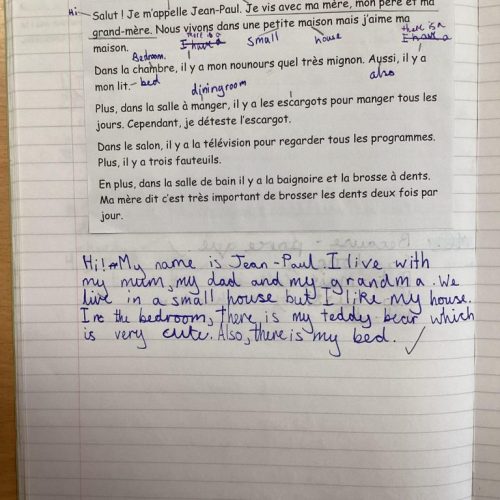 Hi
Salut ! Je m'appelle Jean-Paul. Je vis avec ma mère, mon père et ma
grand-mère. Nous vivons dans une petite maison mais j'aime ma
there is a
small
house
there is a
maison.
I have a
I have a
Bedroom.
Dans la chambre, il y a mon nounours quel très mignon. Aussi, il y a
also
mon lit.
bed
diningroom
Plus, dans la salle à manger, il y a les escargots pour manger tous les
jours. Cependant, je déteste l'escargot.
Dans le salon, il y a la télévision pour regarder tous les programmes.
Plus, il y a trois fauteuils.
En plus, dans la salle de bain il y a la baignoire et la brosse à dents.
Ma mère dit c'est très important de brosser les dents deux fois par
jour.
Hi! My name is Jean-Paul. I live with
my mum, my dad and my grandma. We
live in a small house but I like my house.
In the bedroom, there is my teddy bear which
is very cute. Also, there is my bed.